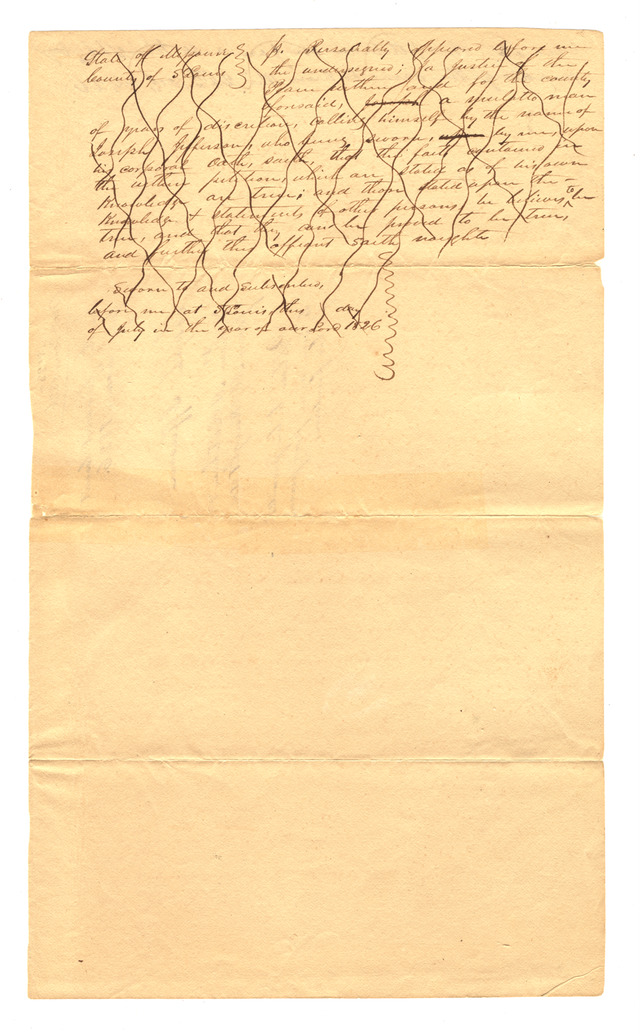 State of Missouri } ss. Personally appeared before me
County of St Louis } the undersigned; a justice of the
Peace within and for the county
foresaid, a mulatto man
of years of discretion, calling himself by the name of
Joseph Jefferson, who being sworn, by me, upon
his corporal oath, saith, that the facts contained in
the within petition, which are stated as of his own
knowledge are true; and those stated upon the
knowledge & statements of other persons, he believes to be
true, and that they can be proved to be true,
and further this affiant saith naught
Sworn to and subscribed,
before me at St Louis this day
of July in the year of our Lord 1826